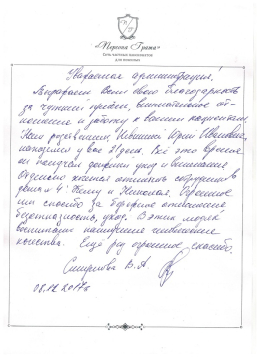 «Персона Грата»
Сеть частных пансионатов
для пожилых
Уважаемая администрация.
Выражаем Вам свою благодарность
за чуткий приём, внимательное от-
ношение и заботу к вашим пациентам.
Наш родственник, Ивашин Юрий Иванович,
находился у вас 21 день. Всё это время
он получал должный уход и внимание
Отдельно хочется отметить сотрудников
дома № 4 Жену и Николая. Огромное
им спасибо за бережное отношение
безопасность, уход. В этих людях
воспитаны наилучшие человеческие
качества. Ещё раз огромное спасибо.
Смирнова В.А
08.12.2017г.